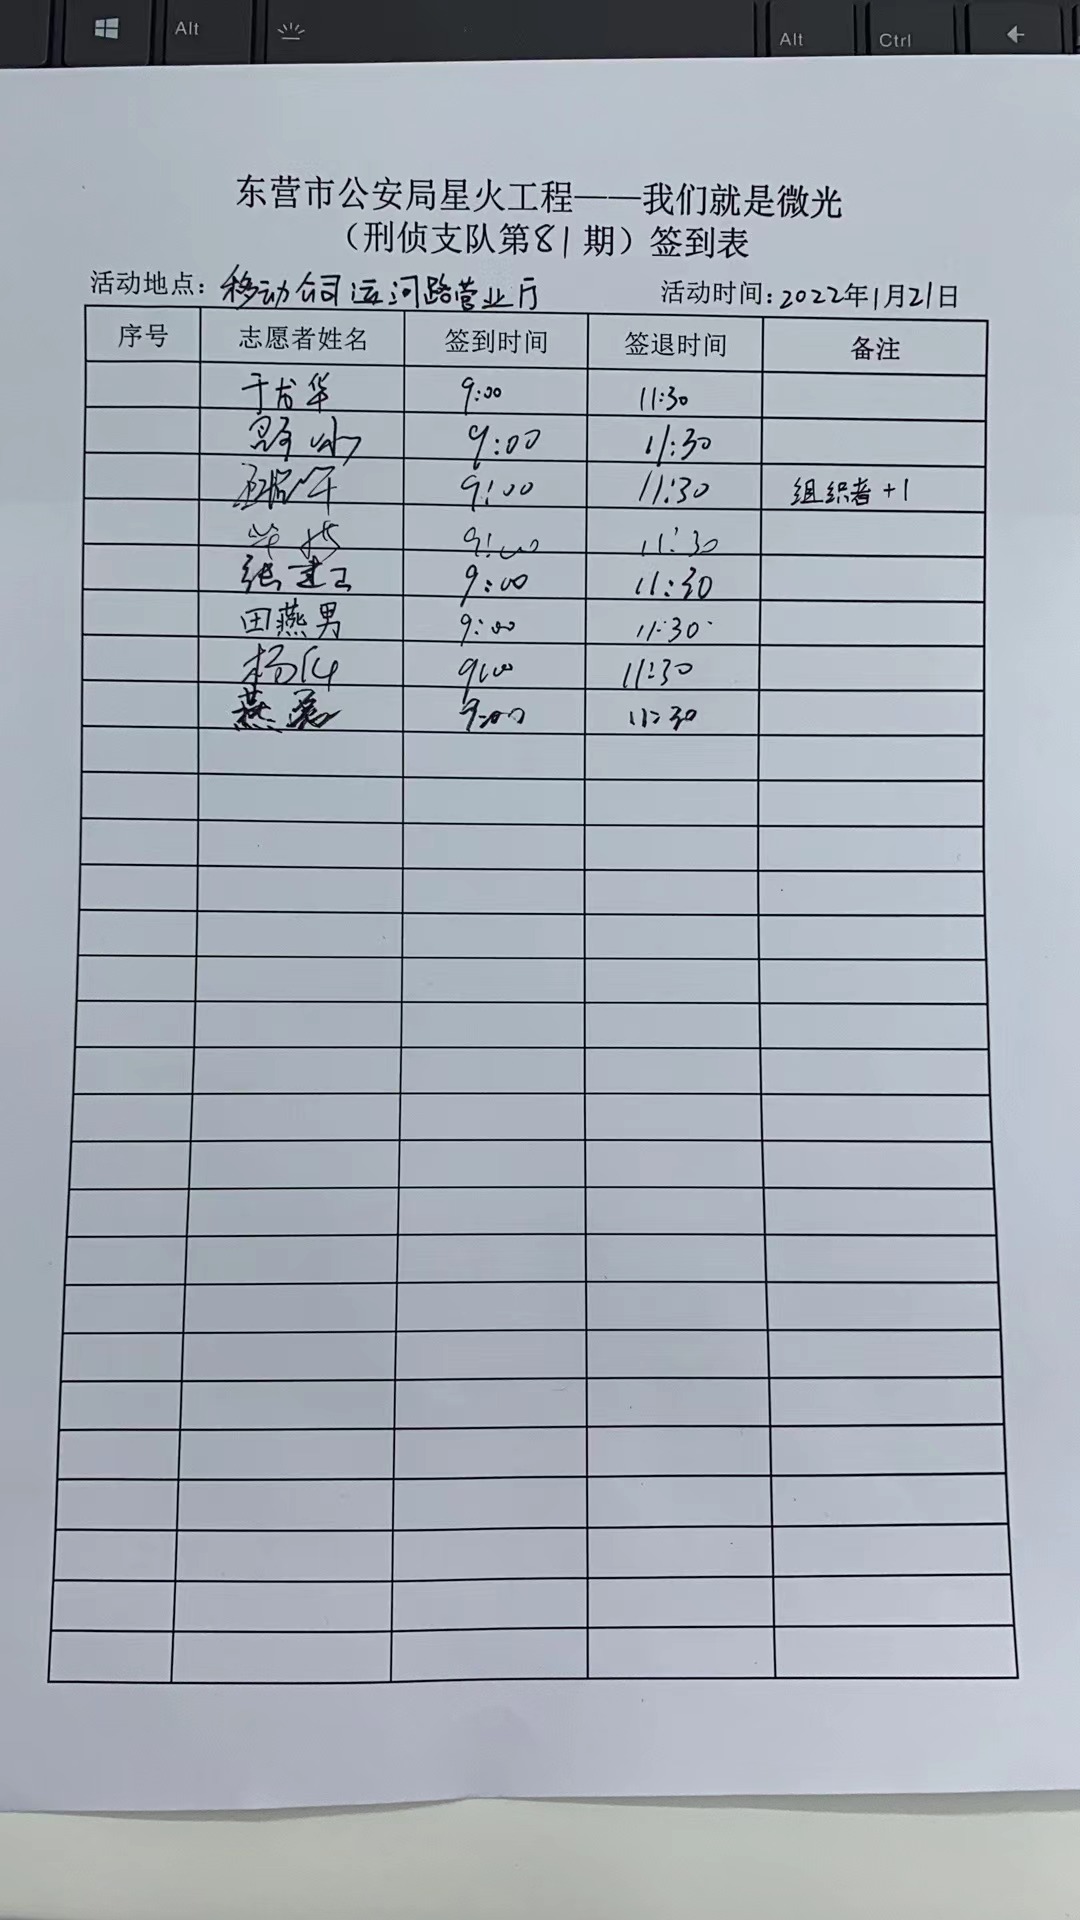 Alt Alt Ctrl
东营市公安局星火工程——我们就是微光
（刑侦支队第81期）签到表
活动地点：移动公司运河路营业厅 活动时间：2022年1月21日
序号 志愿者姓名 签到时间 签退时间 备注
9:00 11:30
9:00 11:30
9:00 11:30 组织者+1
9:00 11:30
张建卫 9:00 11:30
田燕男 9:00 11:30
杨 9:00 11:30
燕 9:00 11:30